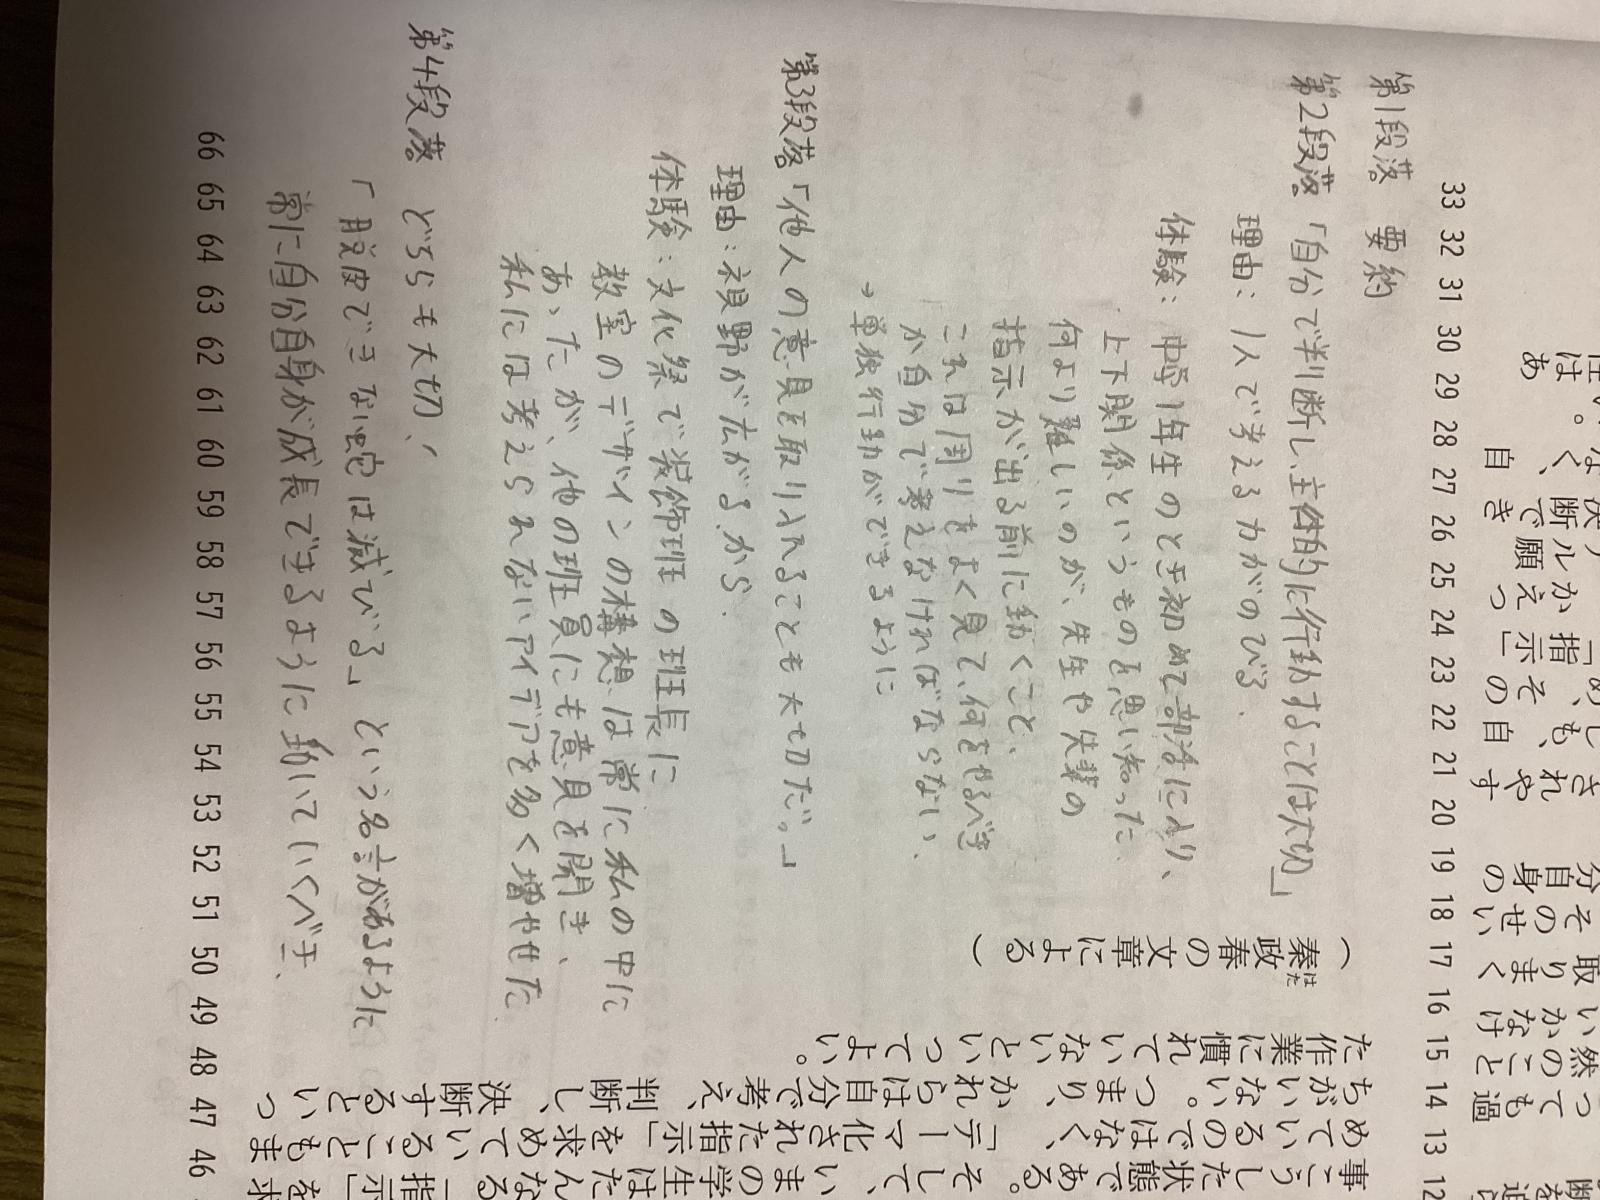 33 32 31 30 29 28 27 26 25 24 23 22 21 20 19 18 17 16 15 14 13 12
第1段落 要約
第2段落「自分で判断し、主体的に行動することは大切」
理由：1人で考える力がのびる.
体験：中学1年生のとき初めて部活に入り、
上下関係というものを思い知った.
何より難しいのが、先生や先輩の
指示が出る前に動くこと、
これは周りをよく見て、何をやるべき
か自分で考えなければならない、
→単独行動ができるように
第3段落「他人の意見を取り入れることも大切だ。」
理由：視野が広がるから.
体験：文化祭で装飾班の班長に
教室のデザインの構想は常に私の中に
あったが、他の班員にも意見を聞き、
私には考えられないアイデアを多く増やせた
第4段落 どちらも大切、
「脱皮できない蛇は滅びる」という名言があるように
常に自分自身が成長できるように動いていくべき、
（秦政春の文章による）
はた
た作業に慣れていないといってよい。
ちがいない。つまり、かれらは自分で考え、判断し、決断するといっ
めているのではなく、「テーマ化された指示」を求めていることもま
事こうした状態である。そして、いまの学生はたんなる「指示」を求
66 65 64 63 62 61 60 59 58 57 56 55 54 53 52 51 50 49 48 47 46